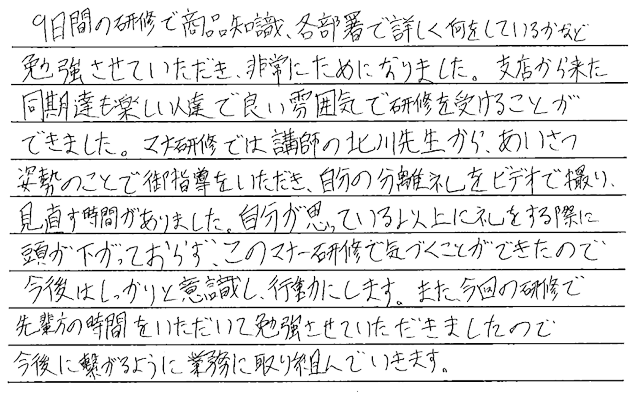 9日間の研修で商品知識、各部署で詳しく何をしているかなど
勉強させていただき、非常にためになりました。支店から来た
同期達も楽しい人達で良い雰囲気で研修を受けることが
できました。マナー研修では講師の北川先生から、あいさつ
姿勢のことで御指導をいただき、自分の分離礼をビデオで撮り、
見直す時間がありました。自分が思っている以上に礼をする際に
頭が下がっておらず、このマナー研修で気づくことができたので
今後はしっかりと意識し、行動にします。また、今回の研修で
先輩方の時間をいただいて勉強させていただきましたので
今後に繋がるように業務に取り組んでいきます。